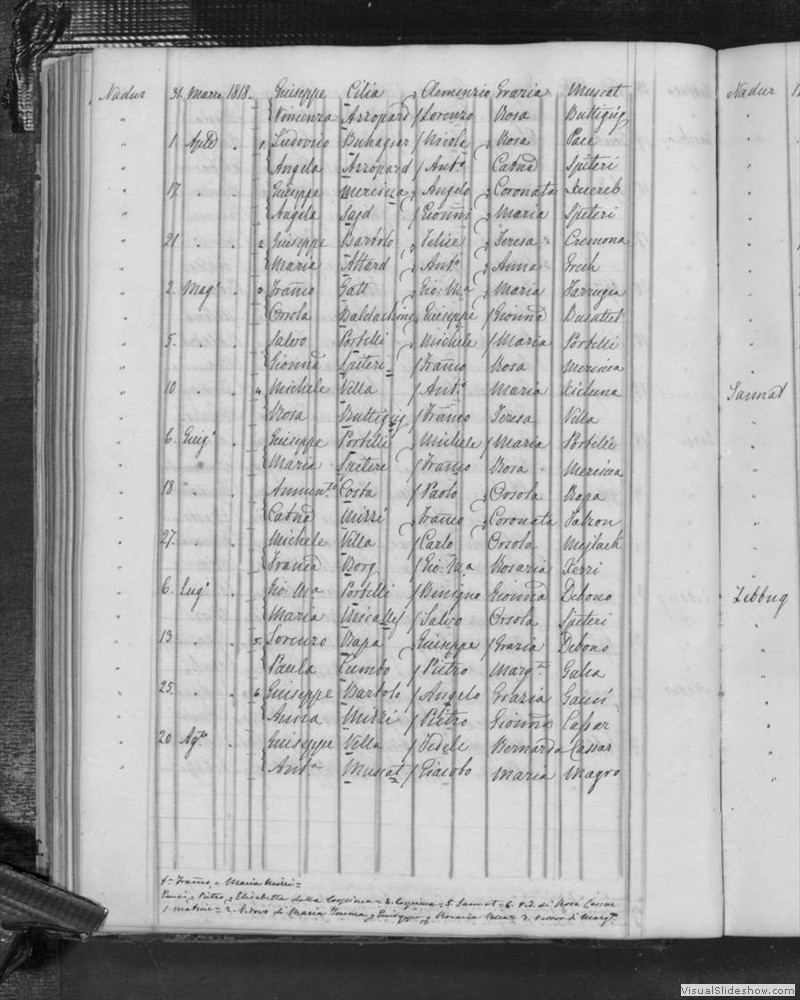 Nadur 31. Marzo 1818. Giuseppe Cilia Clemenzio Grazia Muscat
" Vincenza Azzopard Lorenzo Rosa Buttigig
" 1. Aprile . 1. Ludovico Buhagiar Nicola Rosa Pace
" Angela Azzopard Ant.o Catna Spiteri
" 17. . . Giuseppe Mercieca Angelo Coronata Xuereb
" Angela Said Gionni Maria Spiteri
" 21. . . 2. Giuseppe Bartolo Felice Teresa Cremona
" Maria Attard Ant.o Anna Grech
" 2. Mag.o . 3. Franco Gatt Gio: Ma Maria Farrugia
" Orsola Baldachino Giuseppe Gionna Busuttil
" 5. . . Salvo Portelli Michele Maria Portelli
" Gionna Spiteri Franco Rosa Mercieca
" 10 . . 4. Michele Vella Ant.o Maria Xicluna
" Rosa Buttigig Franco Teresa Vella
" 6. Giug.o . Giuseppe Portelli Michele Maria Portelli
" Maria Spiteri Franco Rosa Mercieca
" 18 . . Annun.to Costa Paolo Orsola Rapa
" Catna Mizzi Franco Coronata Falzon
" 27. . . Michele Vella Carlo Orsola Mejlach
" Franca Borg Gio: Ma Rosaria Xerri
" 6. Lug.o . Gio: Ma Portelli Benigno Gionna Debono
" Maria Micallef Salvo Orsola Spiteri
" 13 . . 5. Lorenzo Rapa Giuseppe Grazia Debono
" Paula Cumbo Pietro Marg.ta Galea
" 25. . . 6. Giuseppe Bartolo Angelo Grazia Gauci
" Anna Mizzi Pietro Gionna Cassar
" 20 Ag.to . Giuseppe Vella Fedele Bernarda Cassar
" Ant.a Muscat Giacobo Maria Magro
4= Franco, e Maria Mizzi=
Pietro, Elisabetta della = 5. Sannat = 6. V.d. di Rosa Cassar
1. = 2. Vedovo di Maria Giuseppe, Rosaria = 3. Vedovo di Marg.ta
Nadur
Sannat
Zebbug
VisualSlideshow.com